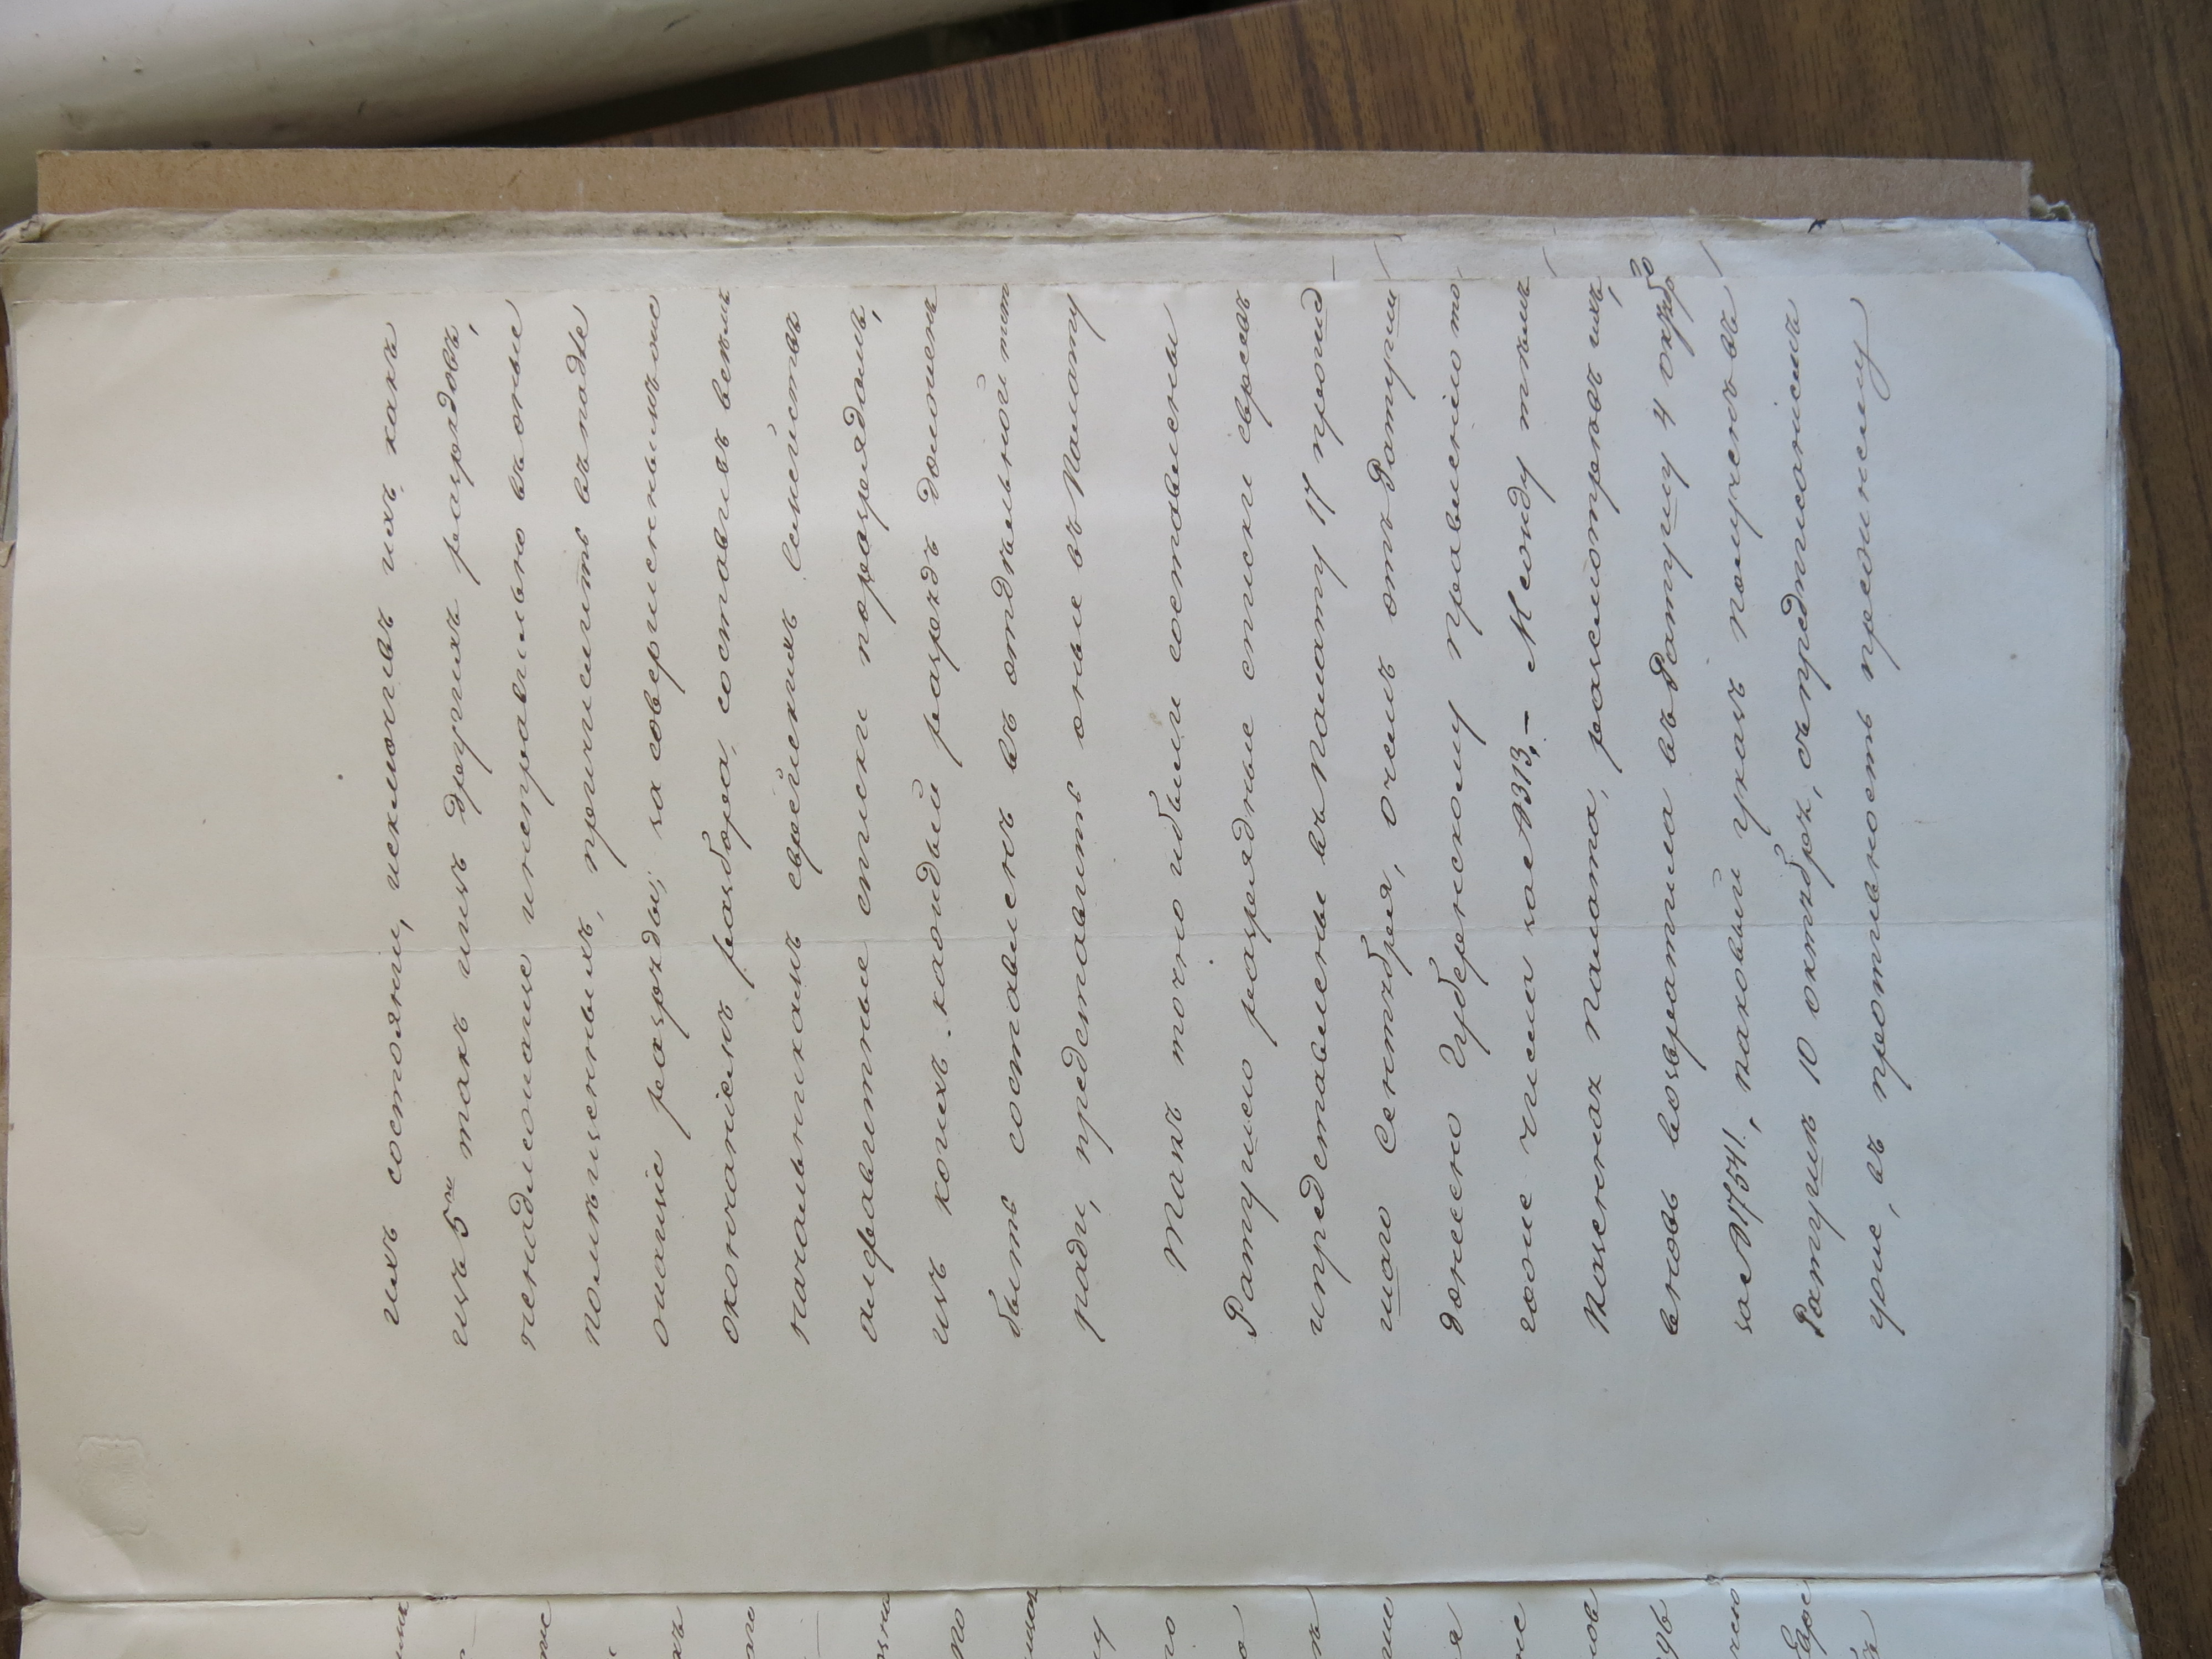 ихъ состояни, исключивъ ихъ какъ
изъ 5го такъ изъ другихъ разрядовъ,
ненадлежаще и неправильно въ оные
помѣщенныхъ, причислить въ подле
жащіе разряды; за совершеннымъ же
окончаніемъ разбора, составивъ всѣмъ
начальникамъ еврейскихъ Семействъ
алфавитные списки поразрядамъ,
изъ коихъ каждый разрядъ долженъ
быть составленъ въ отдѣльной тет
ради, представить оные въ Палату
Такъ точно и были составлены
Ратушею разрядные списки евреевъ
и представлены въ Палату 17 прошед
шаго Сентября, о чемъ отъ Ратуши
донесено Губернскому правленію то
гоже числа за №313,– Между тѣмъ
Казенная Палата, разсмотрѣвъ ихъ,
вновь возвратила въ Ратушу 4 октяб
за №17541., таковый указъ полученъ въ
Ратушѣ 10 октября, съ предписаніемъ
уже, въ противность прежнему